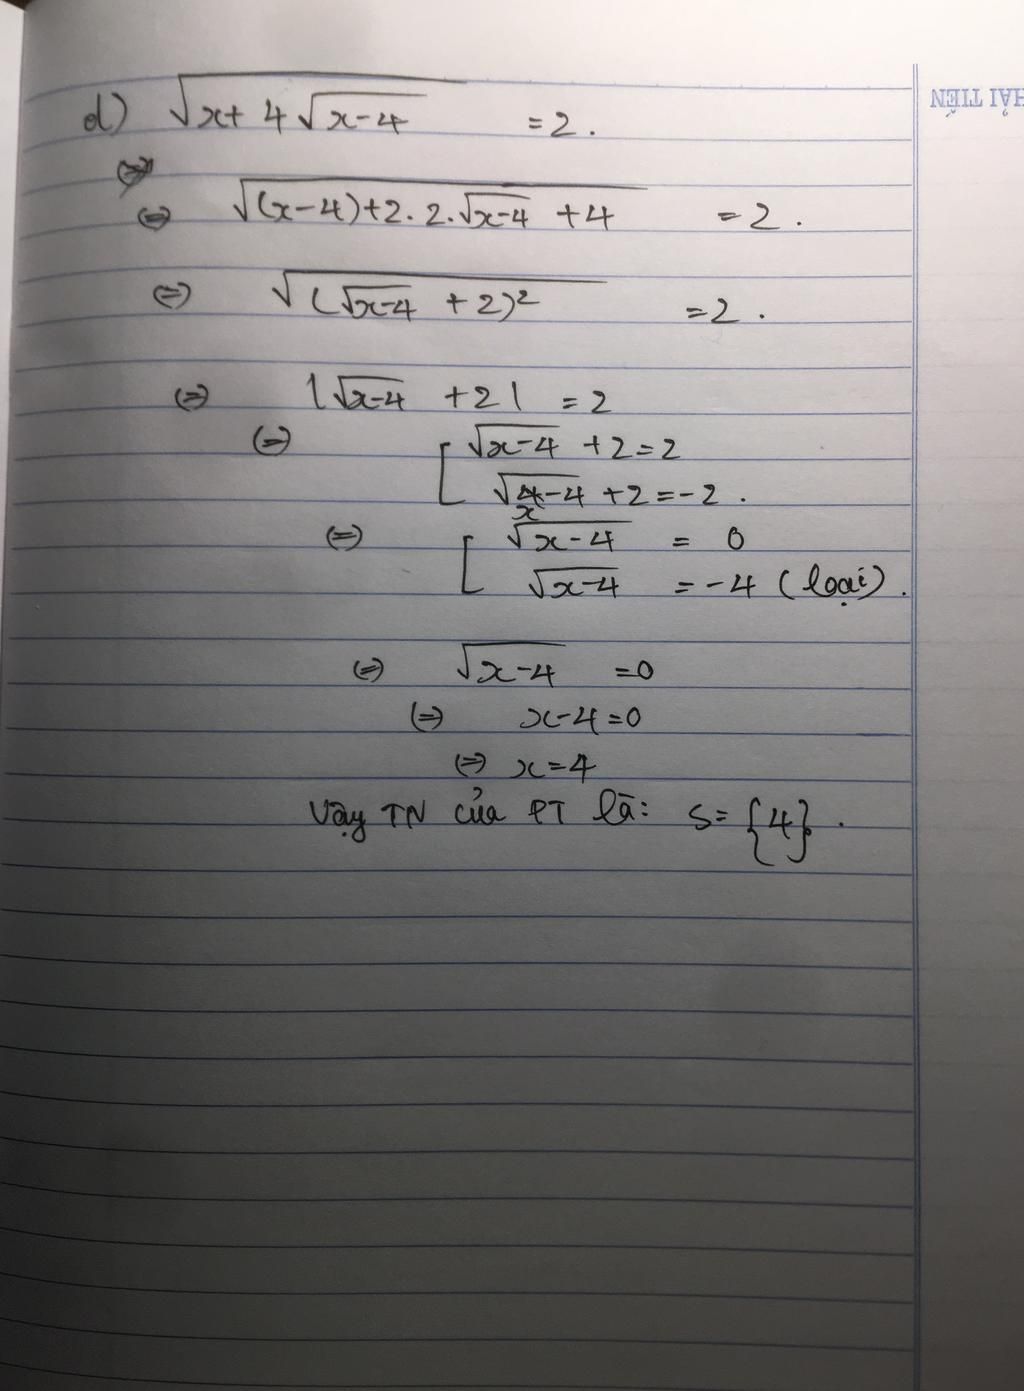 d) √(x+4√(x-4)) = 2.
⇔ √((x-4)+2.2.√(x-4) +4) = 2.
⇔ √((√(x-4) +2)²) = 2.
⇔ |√(x-4) +2| = 2
⇔ [ √(x-4) +2=2
√(x-4) +2=-2.
⇔ [ √(x-4) = 0
√(x-4) = -4 (loại).
⇔ √(x-4) =0
⇔ x-4=0
⇔ x=4
Vậy TN của PT là: S= {4}.
HẢI TIẾN